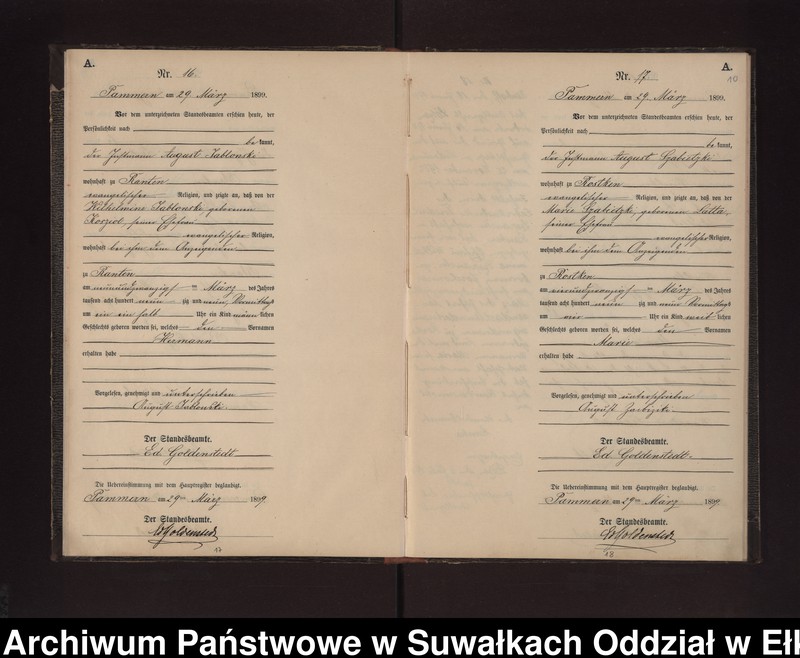 A.
Nr. 16.
Tammern am 29 März 1899.
Vor dem unterzeichneten Standesbeamten erschien heute, der
Persönlichkeit nach
be kannt,
der Instmann August Jablonski
wohnhaft zu Ranten
evangelischer Religion, und zeigte an, daß von der
Wilhelmine Jablonski geborenen
Korziol, seiner Ehefrau
evangelischer Religion,
wohnhaft bei ihm dem Anzeigenden
zu Ranten
am neunundzwanzigsten März des Jahres
tausend acht hundert neunzig und neun, Vormittags
um ein ein halb Uhr ein Kind männlichen
Geschlechts geboren worden sei, welches den Vornamen
Hermann
erhalten habe
Vorgelesen, genehmigt und unterschrieben
August Jablonski
Der Standesbeamte.
Ed Goldenstedt
Die Uebereinstimmung mit dem Hauptregister beglaubigt.
Tammern am 29ten März 1899
Der Standesbeamte.
Ed Goldenstedt
17
A.
10
Nr. 17.
Tammern am 29. März 1899.
Vor dem unterzeichneten Standesbeamten erschien heute, der
Persönlichkeit nach
be kannt,
der Instmann August
wohnhaft zu Rostken
evangelischer Religion, und zeigte an, daß von der
Marie geborenen Latta,
seiner Ehefrau
evangelischer Religion,
wohnhaft bei ihm dem Anzeigenden
zu Rostken
am vierundzwanzigsten März des Jahres
tausend acht hundert neunzig und neun Vormittags
um Uhr ein Kind weiblichen
Geschlechts geboren worden sei, welches den Vornamen
Marie
erhalten habe
Vorgelesen, genehmigt und unterschrieben
August
Der Standesbeamte.
Ed Goldenstedt.
Die Uebereinstimmung mit dem Hauptregister beglaubigt.
Tammern am 29ten März 1899
Der Standesbeamte.
Ed Goldenstedt
18
Archiwum Państwowe w Suwałkach Oddział w Ełk